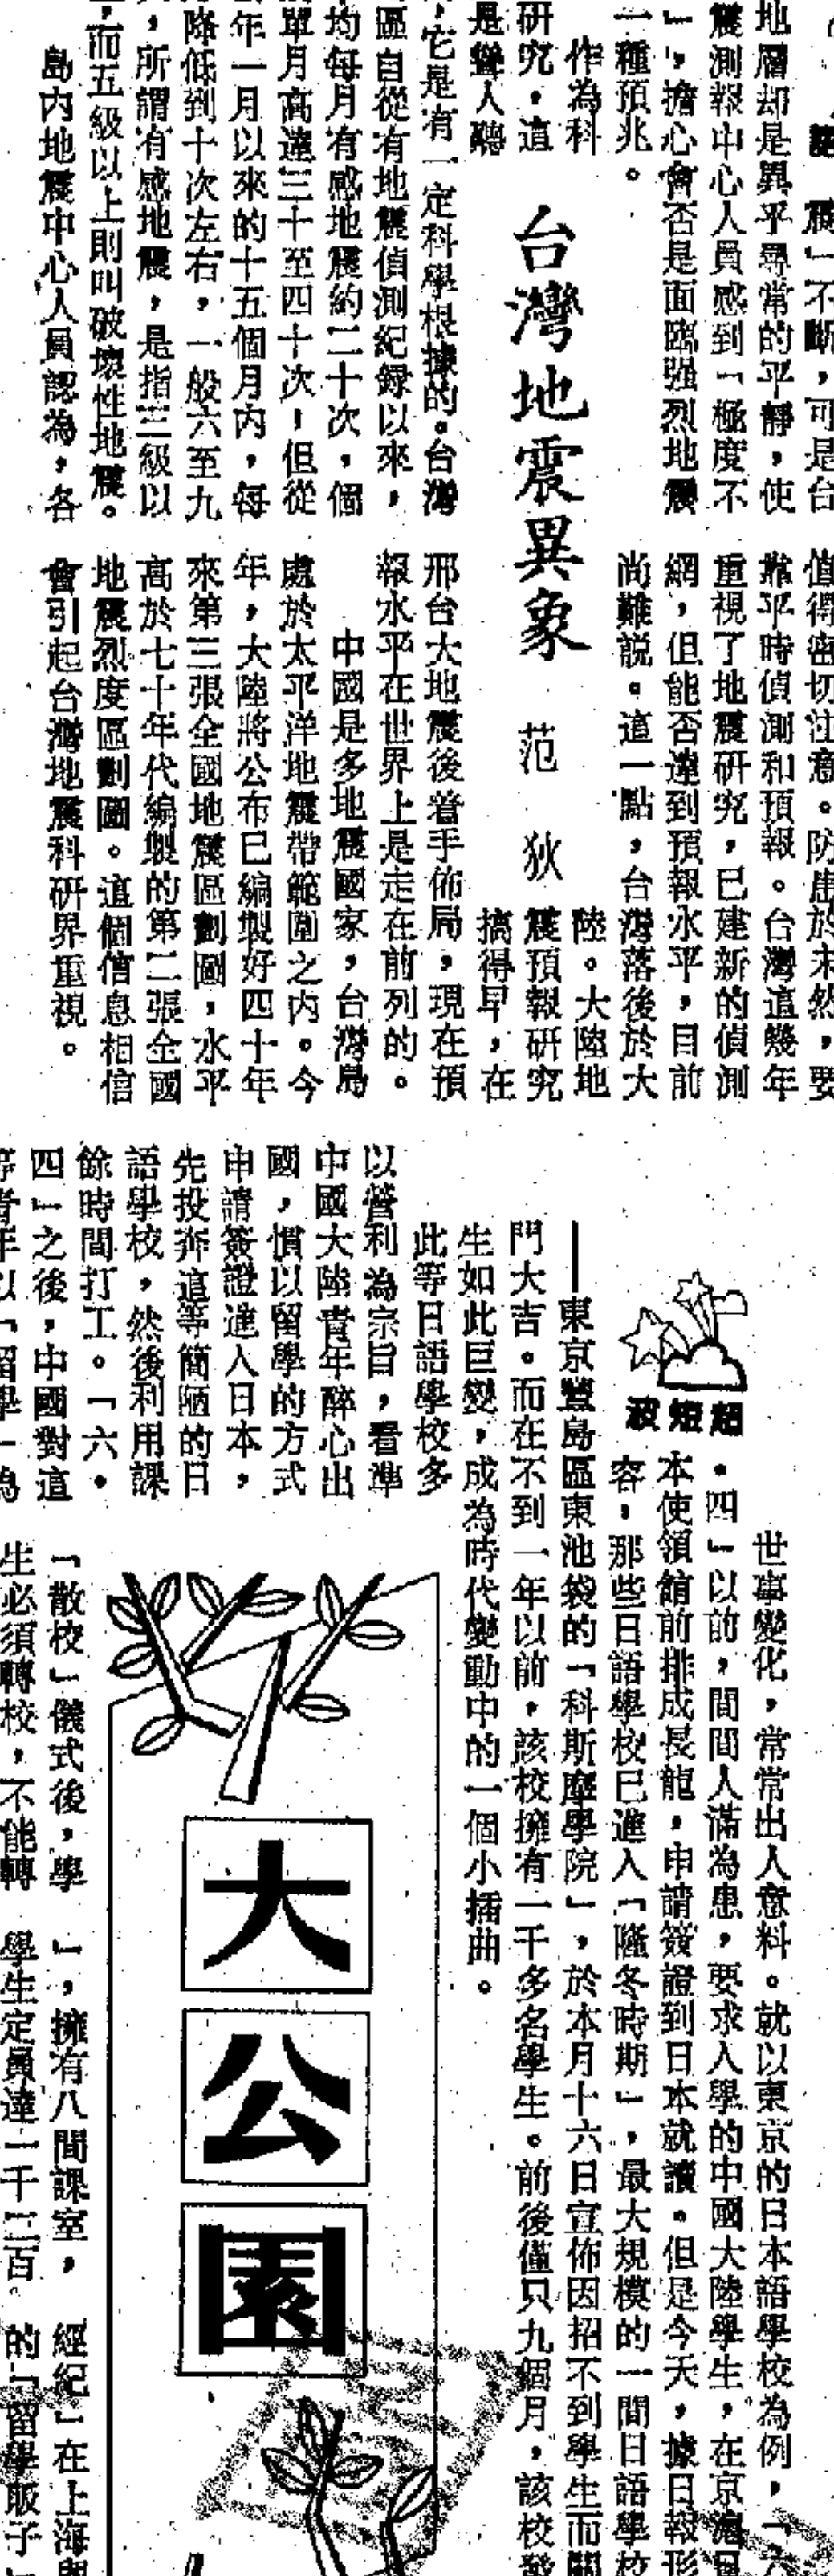 震」不斷，可是台
地層却是異乎尋常的平靜，使
震測報中心人員感到「極度不
」，擔心會否是面臨强烈地震
一種預兆。
作為科
研究，這
是聳人聽
台灣地震異象
范狄
，它是有一定科學根據的。台灣
區自從有地震偵測紀録以來，
均每月有感地震約二十次，個
單月高達三十至四十次，但從
年一月以來的十五個月內，每
降低到十次左右，一般六至九
，所謂有感地震，是指三級以
，而五級以上則叫破壞性地震。
島內地震中心人員認為，各
值得密切注意。防患於未然，要
靠平時偵測和預報。台灣這幾年
重視了地震研究，已建新的偵測
網，但能否達到預報水平，目前
尚難説。這一點，台灣落後於大
陸。大陸地
震預報研究
搞得早，在
邢台大地震後着手佈局，現在預
報水平在世界上是走在前列的。
中國是多地震國家，台灣島
處於太平洋地震帶範圍之內。今
年，大陸將公布已編製好四十年
來第三張全國地震區劃圖，水平
高於七十年代編製的第二張全國
地震烈度區劃圖。這個信息相信
會引起台灣地震科研界重視。
超短波
世事變化，常常出人意料。就以東京的日本語學校為例，「六
・四」以前，間間人滿為患，要求入學的中國大陸學生，在京滬日
本使領館前排成長龍，申請簽證到日本就讀。但是今天，據日報形
容，那些日語學校已進入「隆冬時期」，最大規模的一間日語學校
——東京豐島區東池袋的「科斯摩學院」，於本月十六日宣佈因招不到學生而關
門大吉。而在不到一年以前，該校擁有一千多名學生。前後僅只九個月，該校發
生如此巨變，成為時代變動中的一個小插曲。
此等日語學校多
以營利為宗旨，看準
中國大陸青年醉心出
國，慣以留學的方式
申請簽證進入日本，
先投奔這等簡陋的日
語學校，然後利用課
餘時間打工。「六・
四」之後，中國對這
等青年以「留學」為
大公園
「散校」儀式後，學
生必須轉校，不能轉
」，擁有八間課室，
學生定員達一千三百。
經紀」在上海
的「留學販子」